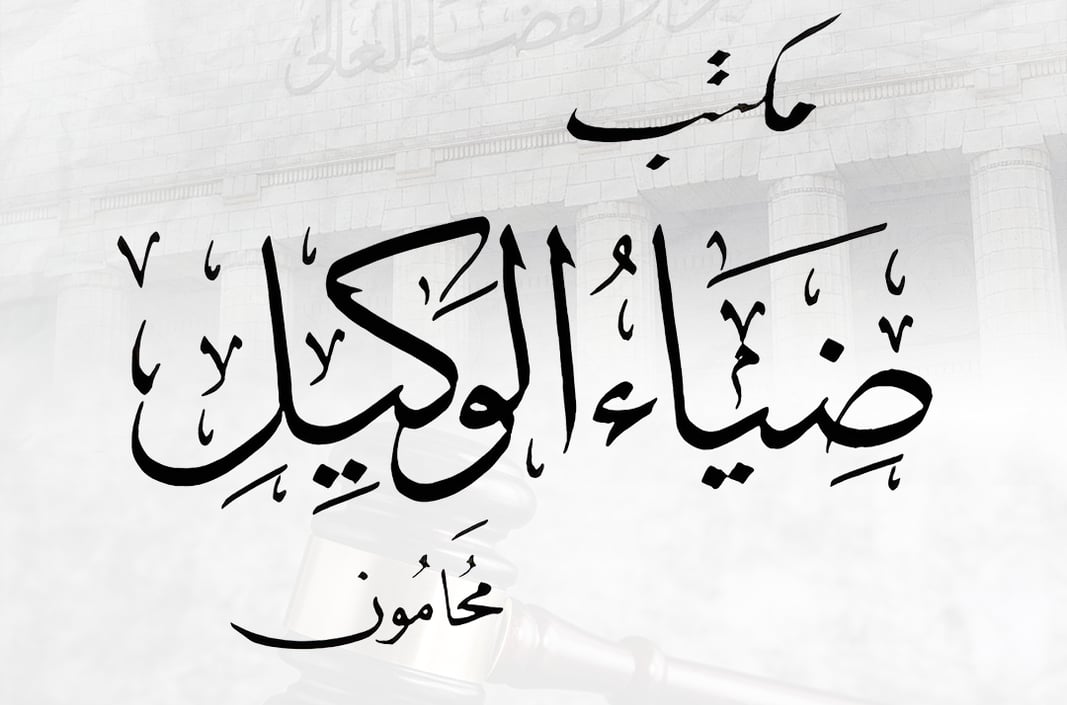 دار القضاء العالى
مكتب
ضِيَاءُ الوَكِيلِ
مُحَامُون